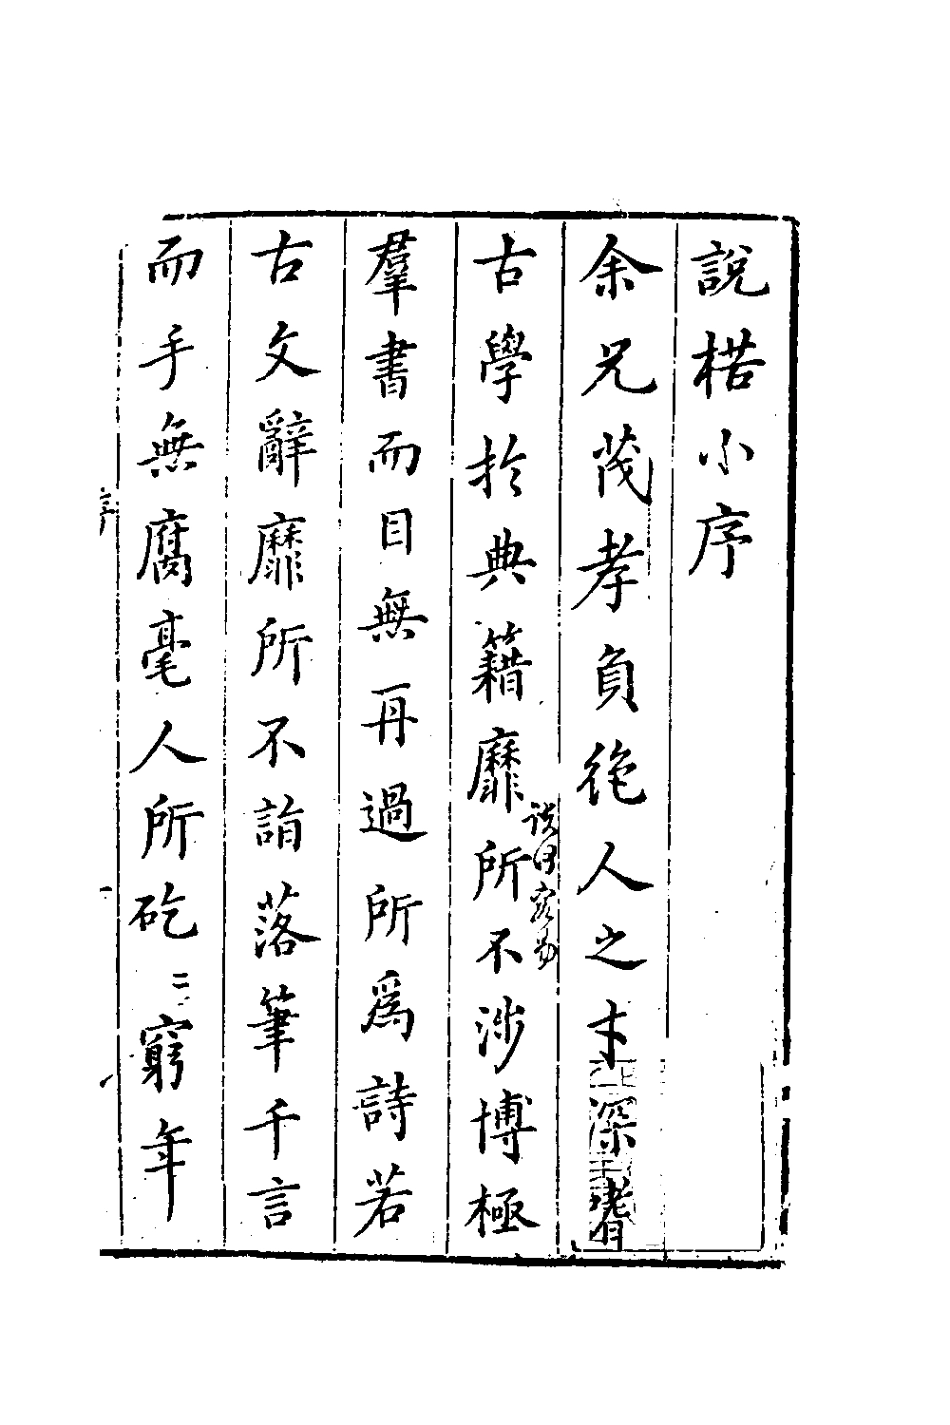 說楛小序
余兄茂孝負絶人之才深耆
古學於典籍靡所不涉博極
談何容易
羣書而目無再過所爲詩若
古文辭靡所不詣落筆千言
而手無腐毫人所矻二窮年